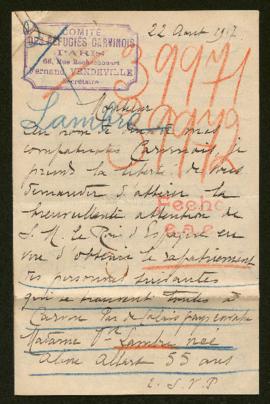 COMITÉ
DES RÉFUGIÉS CARVINOIS
PARIS
66, Rue Rochechouart
Fernand VENDEVILLE
Secrétaire
22 Aout 1917
39971
Lambre
Monsieur
Au nom de mes
compatriotes Carvinois, je
prends la liberté de vous
demander d'attirer la
bienveillante attention de
S. M. Le Roi d'Espagne en
vue d'obtenir le rapatriement
des personnes suivantes
qui se trouvent toutes à
Carvin Pas de Calais pays envahi
Madame Vve Lambre née
Aline Allart 55 ans
T. S. V. P
Fecho